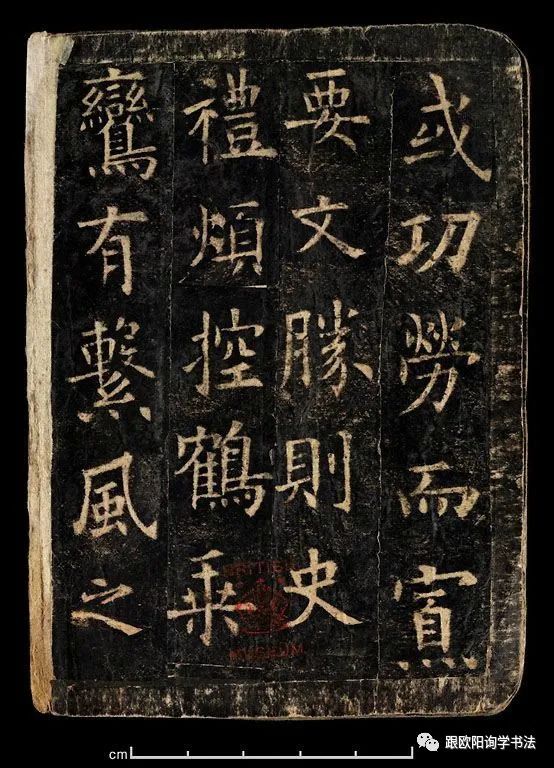 或功勞而寡
要文勝則史
禮煩控鶴乗
鸞有繫風之
BRITISH
MUSEUM
cm
跟欧阳询学书法